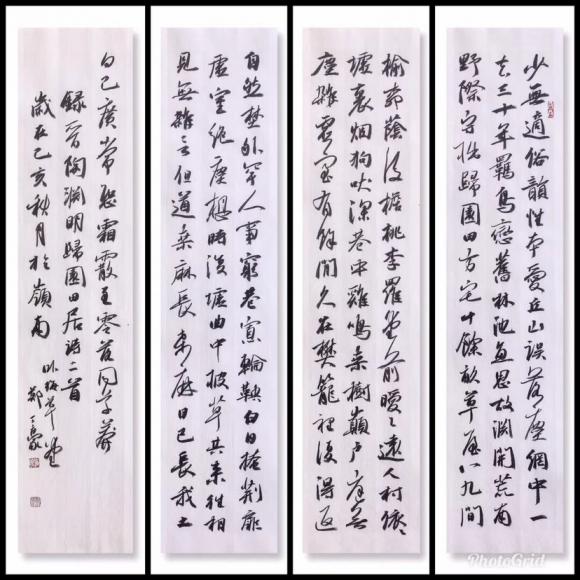 少無適俗韻性本愛丘山誤落塵網中一
去三十年羈鳥戀舊林池魚思故淵開荒南
野際守拙歸園田方宅十餘畝草屋八九間
榆柳蔭後檐桃李羅堂前曖〻遠人村依〻
墟裏烟狗吠深巷中雞鳴桑樹巔戶庭無
塵雜虛室有餘閒久在樊籠裡復得返
自然野外罕人事窮巷寡輪鞅白日掩荊扉
虛室絕塵想時復墟曲中披草共來往相
見無雜言但道桑麻長桑麻日已長我土
日已廣常恐霜霰至零落同草莽
錄晉陶淵明歸園田居詩二首
歲在己亥秋月於嶺南
草堂
鄭
PhotoGrid